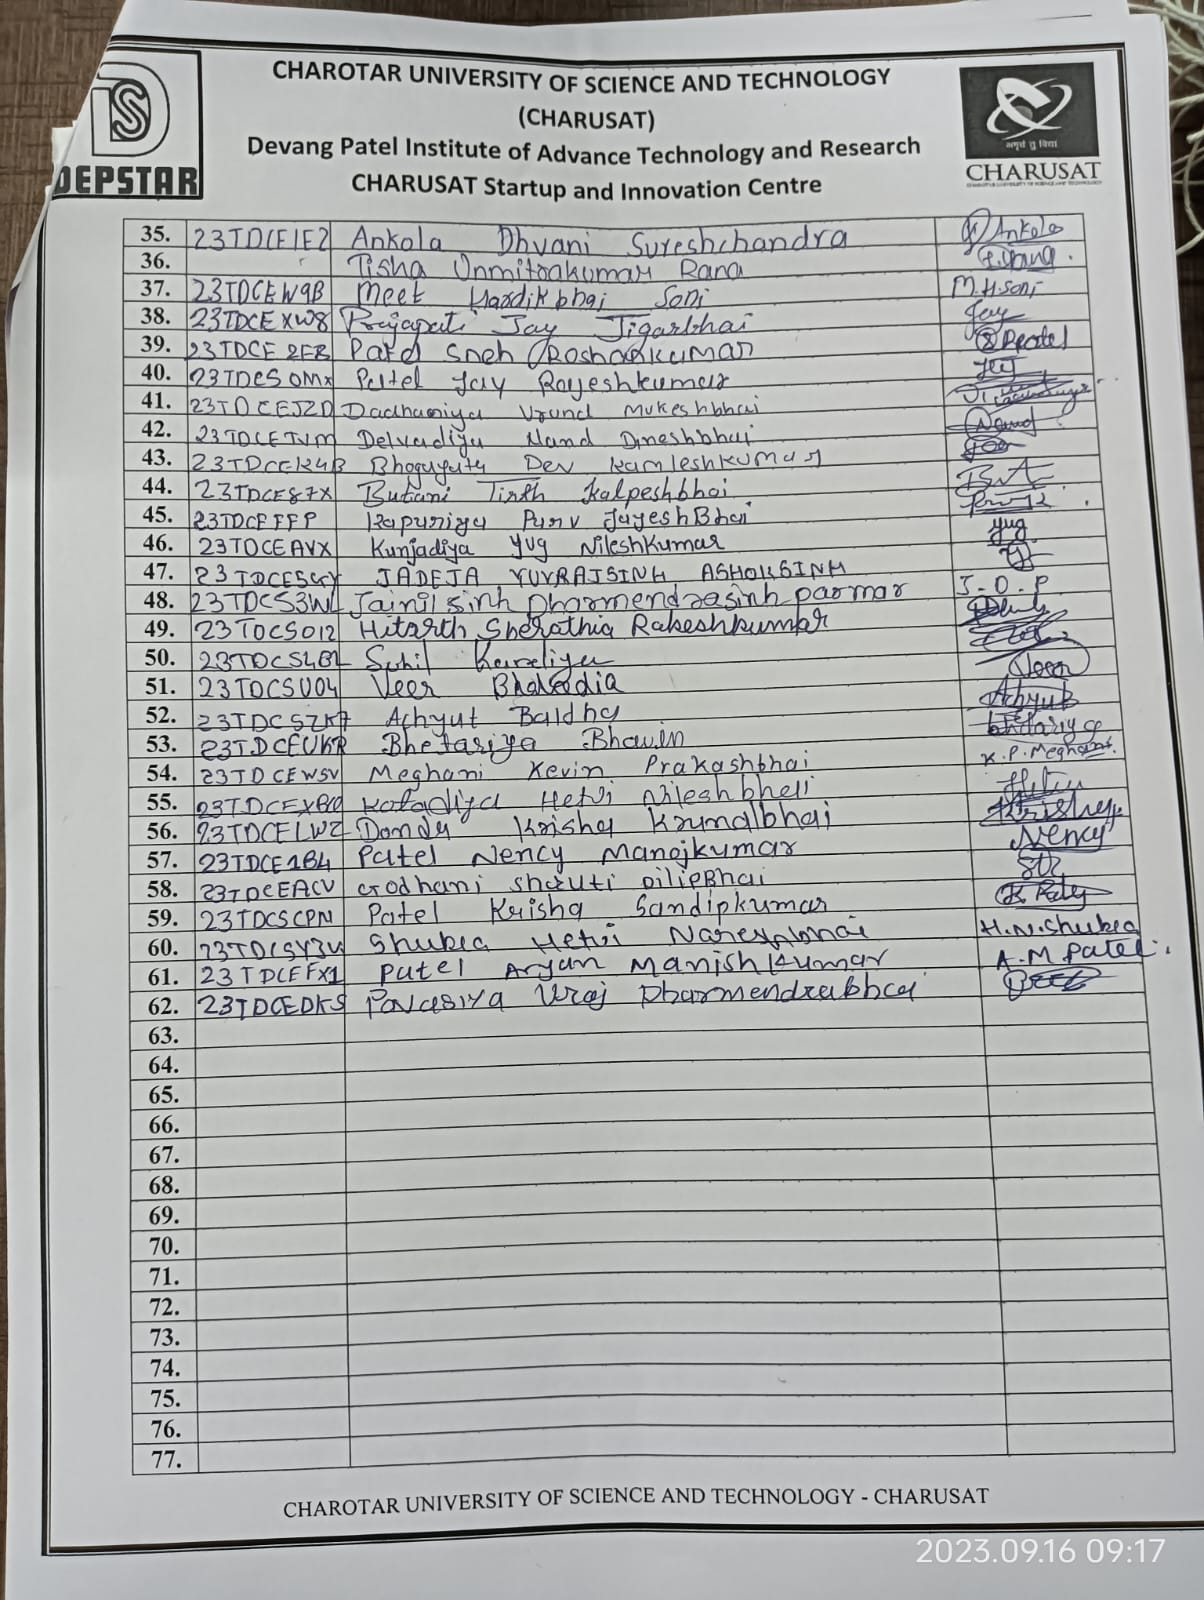 DS
DEPSTAR
CHAROTAR UNIVERSITY OF SCIENCE AND TECHNOLOGY
(CHARUSAT)
Devang Patel Institute of Advance Technology and Research
CHARUSAT Startup and Innovation Centre
CHARUSAT
35. 23TDCE1EZ Ankola Dhvani Sureshchandra Ankola
36. Tisha Unmitrakumar Rana
37. 23TDCEW9B Meet Hardikbhai Soni M.H.Soni
38. 23TDCEXW8 Prajapati Jay Jigarbhai Jay
39. 23TDCE2EB Patel Sneh Roshankumar
40. 23TDCS0MX Patel Jay Rajeshkumar
41. 23TDCEJZD Dadhaniya Vrund Mukeshbhai
42. 23TDCETVM Delvadiya Nand Dineshbhai Nand
43. 23TDCEK4B Dev Kamleshkumar
44. 23TDCE87X Butani Tirth Kalpeshbhai
45. 23TDCEFFP Kapuriya Purv JayeshBhai
46. 23TDCEAVX Kunjadiya Yug NileshKumar Yug
47. JADEJA YUVRAJSINH ASHOKSINH
48. 23TDCS3WL Jainilsinh Dharmendrasinh parmar J.O.P
49. 23TDCS012 Hitarth Sherathia Rakeshkumar
50. Sahil Kareliya
51. 23TDCSU04 Veer Bhalodia Veer
52. 23TDCSZK7 Achyut Baldha Achyut
53. 23TDCEUKR Bhetariya Bhavin
54. 23TDCEWSV Meghani Kevin Prakashbhai K.P.Meghani
55. Hetvi Nileshbhai
56. 23TDCELWZ Donda Krisha Krunalbhai
57. 23TDCE1B4 Patel Nency Manojkumar Nency
58. 23TDCEACV Godhani Shruti DilipBhai
59. 23TDCSCPN Patel Krisha Sandipkumar
60. 23TDCSY3U Shukla Hetvi Nareshbhai H.N.Shukla
61. 23TDCEFX1 Patel Aryan Manishkumar A.M Patel
62. 23TDCEDKS Povasiya Vraj Dharmendrabhai
63.
64.
65.
66.
67.
68.
69.
70.
71.
72.
73.
74.
75.
76.
77.
CHAROTAR UNIVERSITY OF SCIENCE AND TECHNOLOGY - CHARUSAT
2023.09.16 09:17